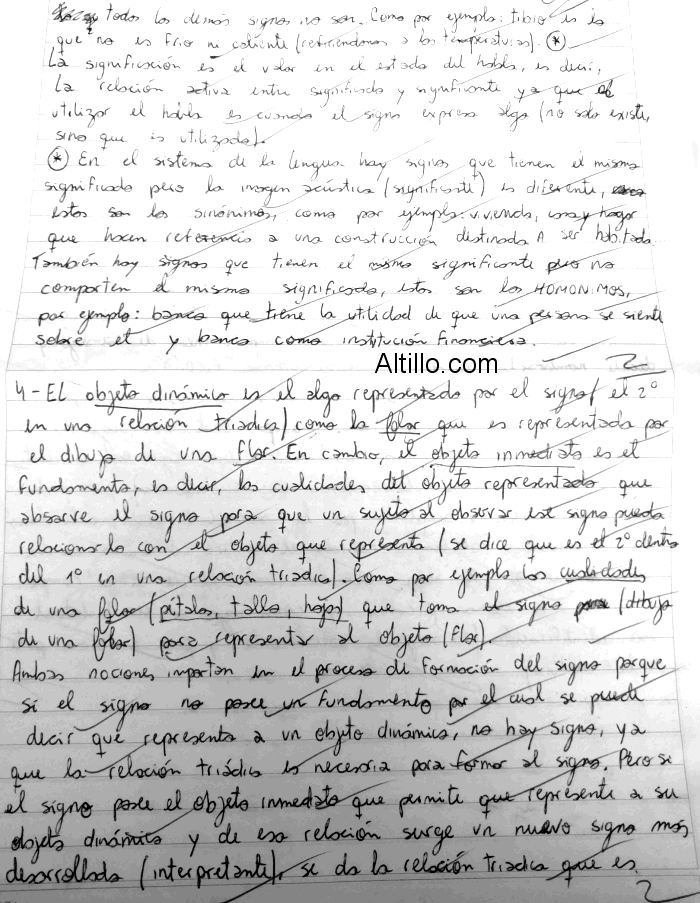 todos los demás signos no son. Como por ejemplo: tibio es lo
que no es frio ni caliente (refiriendonos a las temperaturas). (*)
La significación es el valor en el estado del habla, es decir,
La relación activa entre significado y significante ya que al
utilizar el habla es cuando el signo expresa algo (no solo existe,
sino que es utilizado).
(*) En el sistema de la lengua hay signos que tienen el mismo
significado pero la imagen acústica (significante) es diferente,
estos son los sinónimos, como por ejemplo: vivienda, casa y hogar
que hacen referencia a una construcción destinada A ser habitada.
También hay signos que tienen el mismo significante pero no
comparten el mismo significado, estos son los HOMONIMOS,
por ejemplo: banco que tiene la utilidad de que una persona se siente
sobre el y banco como institución financiera.
2
Altillo.com
4- EL objeto dinámico es el algo representado por el signo (el 2º
en una relación triadica) como la folor que es representada por
el dibujo de una flor. En cambio, el objeto inmediato es el
fundamento, es decir, las cualidades del objeto representado que
absorve el signo para que un sujeto al observar ese signo pueda
relacionarlo con el objeto que representa (se dice que es el 2º dentro
del 1º en una relación triadica). Como por ejemplo las cualidades
de una folor (pétalos, tallo, hojas) que toma el signo (dibujo
de una folor) para representar al objeto (flor).
Ambas nociones importan en el proceso de formación del signo porque
si el signo no posee un fundamento por el cual se puede
decir que representa a un objeto dinámico, no hay signo, ya
que la relación triádica es necesaria para formar al signo. Pero si
el signo posee el objeto inmediato que permite que represente a su
objeto dinámico y de esa relación surge un nuevo signo más
desarrollado (interpretante), se da la relación triadica que es
2